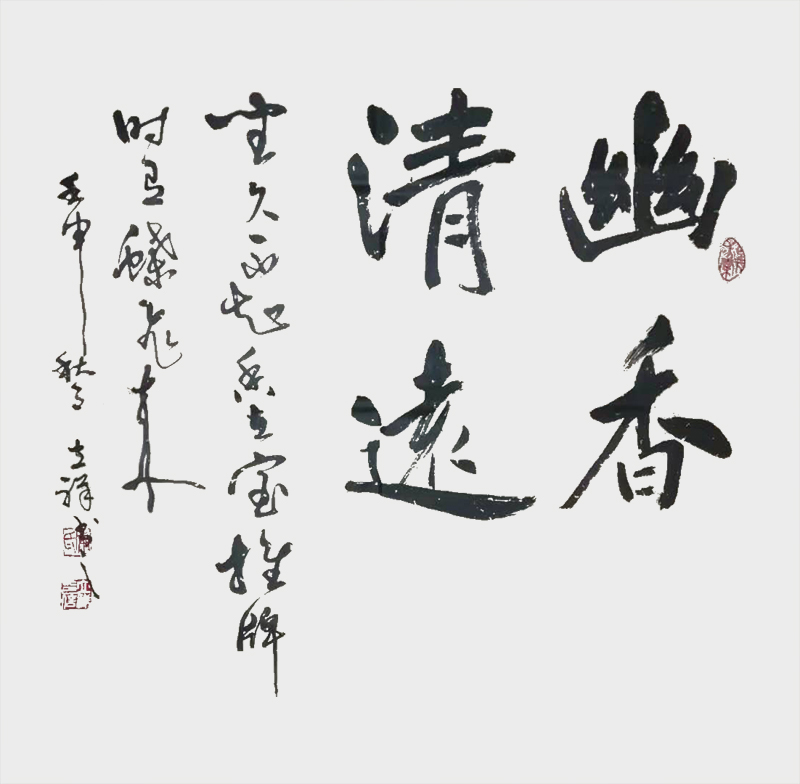 幽香
清遠
坐久不知香在室推
时有蝶飛来
壬申秋月立祥書